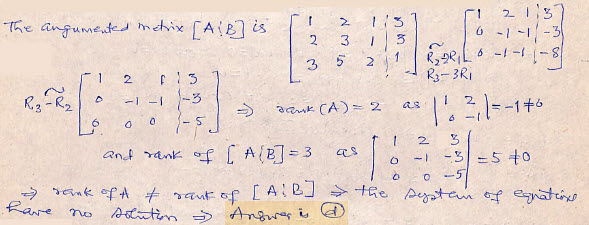 The angumented metrix [A¦B] is [1 2 1 ¦ 3; 2 3 1 ¦ 3; 3 5 2 ¦ 1] ~ R2-2R1 R3-3R1 [1 2 1 ¦ 3; 0 -1 -1 ¦ -3; 0 -1 -1 ¦ -8]
~ R3-R2 [1 2 1 ¦ 3; 0 -1 -1 ¦ -3; 0 0 0 ¦ -5] ⇒ rank (A) = 2 as |1 2; 0 -1| = -1 ≠ 0
and rank of [A¦B] = 3 as [1 2 3; 0 -1 -3; 0 0 -5| = 5 ≠ 0
⇒ rank of A ≠ rank of [A¦B] ⇒ the System of equations
have no solution ⇒ Answer is (d)